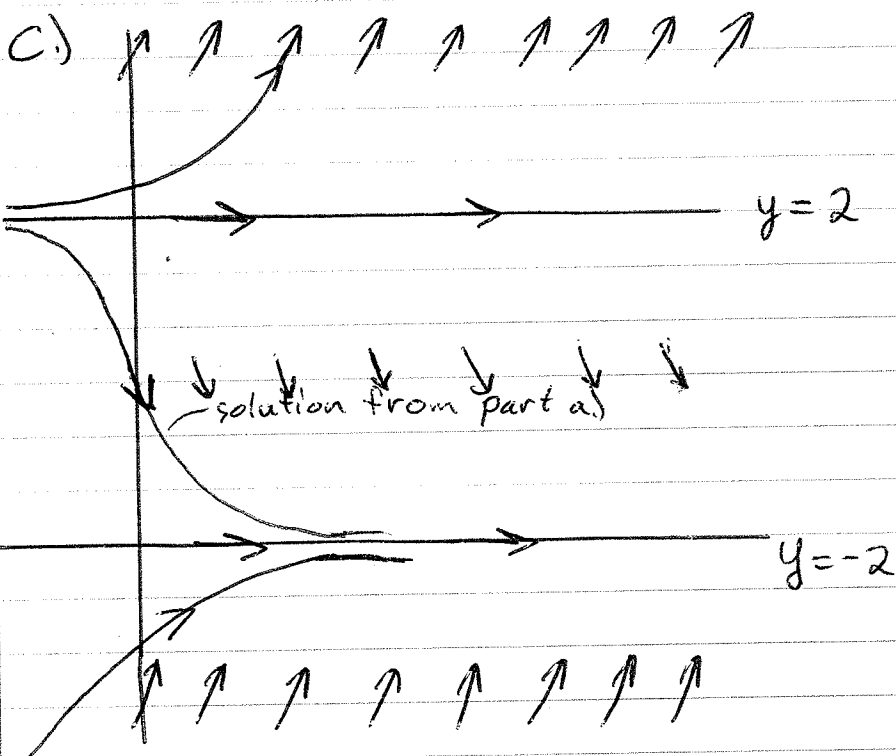 C.)
y = 2
solution from part a.)
y = -2